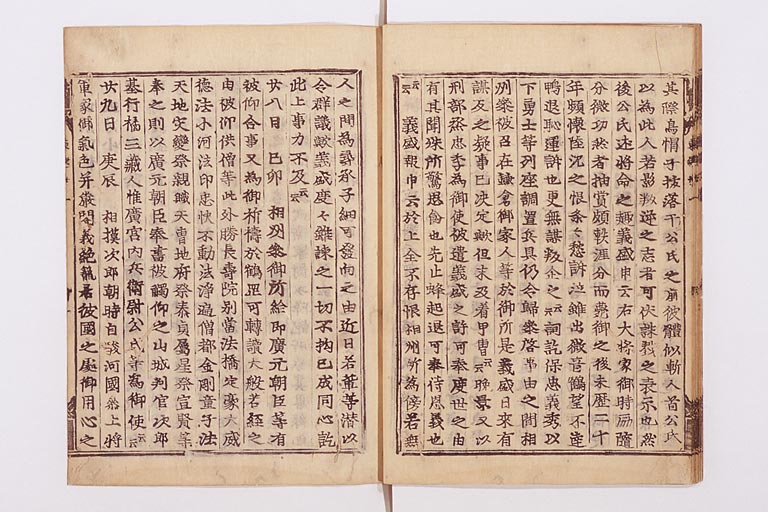 其際烏帽子抜落于公氏之前彼體似斬人首公氏
以為此人若彰叛逆之志者可伏誅戮之表示也然
後公氏述將命之趣義盛申云右大將家御時励隨
分微功然者抽賞頗軼涯分而薨御之後未歴二十
年頻懐陸沈之恨条々愁訴泣雖出微音鶴望不達
鴨退恥運許也更無謀叛企之云々詞訖保忠義秀以
下勇士等列座調置兵具仍令歸参啓事由之間相
州参被召在鎌倉御家人等於御所是義盛日来有
謀叛之疑事已决定歟但未及着甲冑云々晩景又以
刑部丞忠季為御使被遣義盛之許可奉度世之由
有其聞殊所驚思食也先止蜂起退可奉待恩義也
云々 義盛報申云於上全不存恨相州所為傍若無
人之間為尋承子細可發向之由近日若輩等潜以
令群議歟義盛度々雖諫之一切不拘已成同心訖
此上事力不及云々
廿八日 己卯 相州参御所給即廣元朝臣等有
被仰合事又為御祈禱於鶴岳可轉讀大般若経之
由被仰供僧等此外勝長壽院別當法橋定豪大威
德法小河法印忠快不動法浄遍僧都金剛童子法
天地灾變祭親職天曹地府祭泰貞属星祭宣賢等
奉之則以廣元朝臣奉書被觸仰之山城判官次郎
基行橘三蔵人惟廣宮内兵衛尉公氏等為御使云々
廿九日 小庚辰 相摸次郎朝時自駿河國参上將
軍家御氣色并嚴閤義絶籠居彼國之處御用心之